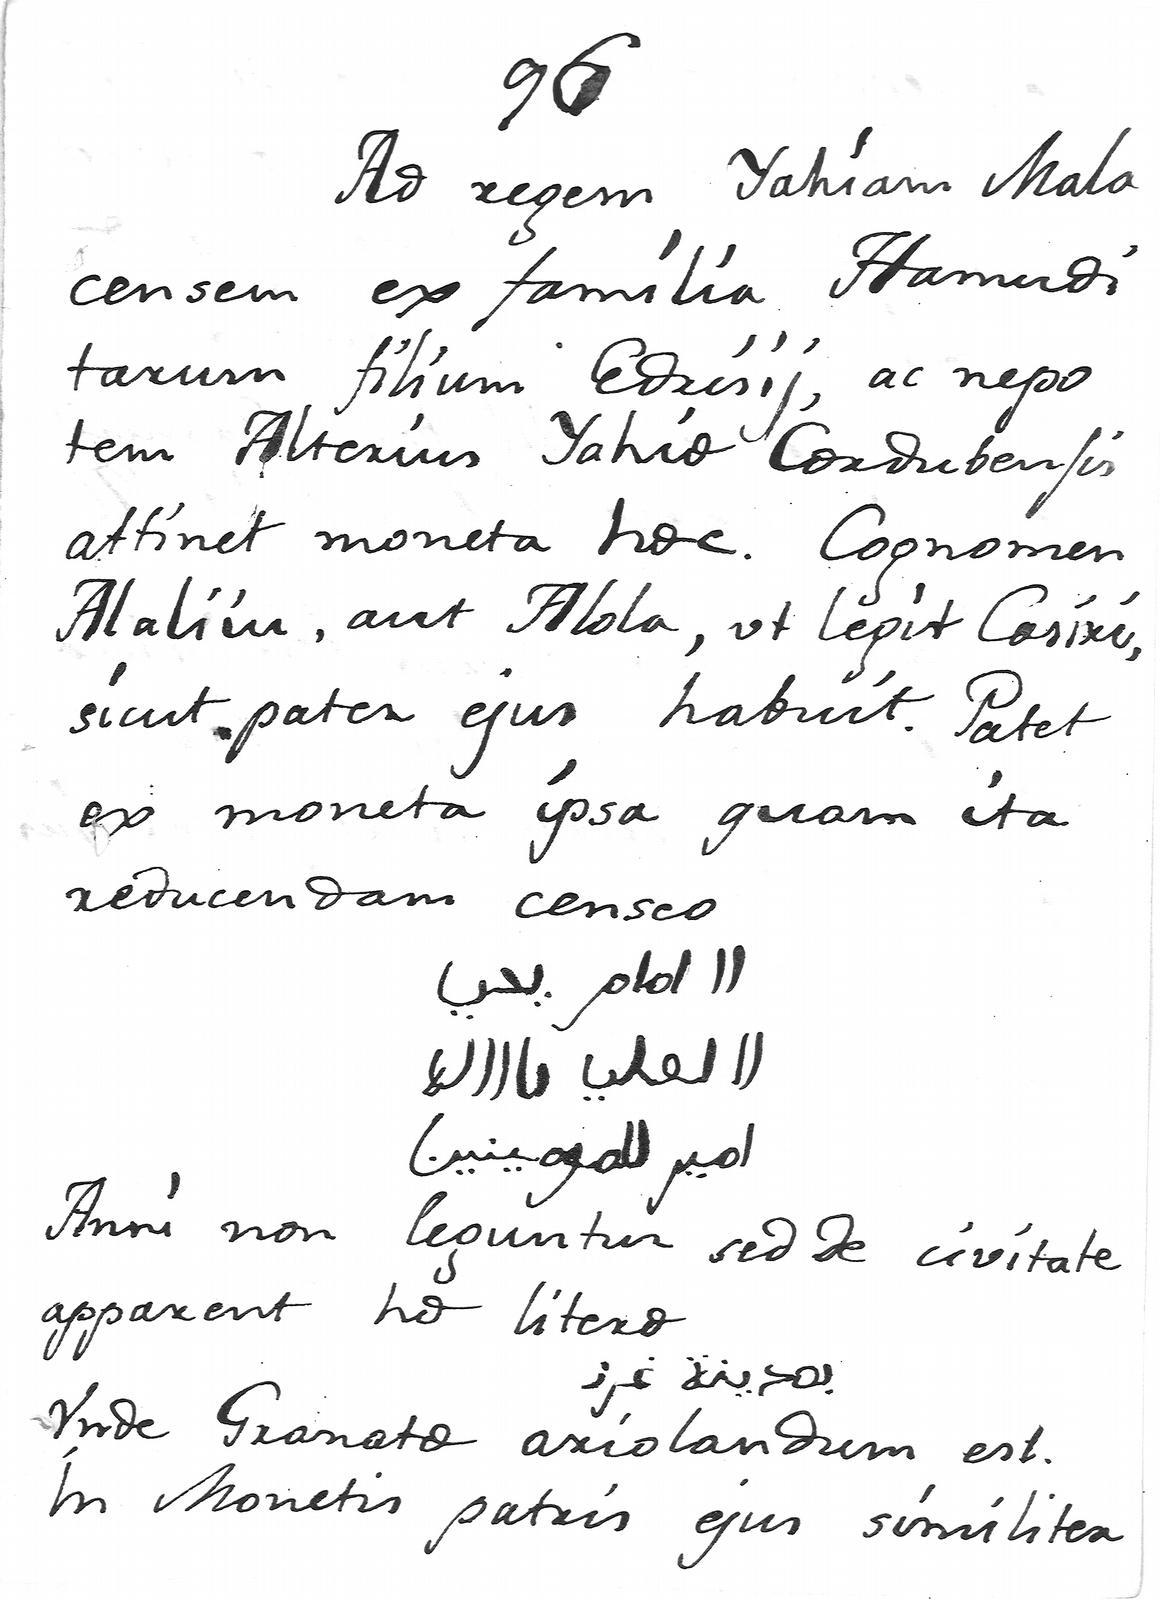 96
Ad regem Yahiam Mala
censem ex família Hamudi
tarum filium Edrisij, ac nepo
tem Alterius Yahiæ Cordubensis
attinet moneta hæc. Cognomen
Alaliiu, aut Alola, vt legit Casiri,
sicut pater ejus habuit. Patet
ex moneta ipsa quam ita
reducendam censeo
الامام يحيي
العلي بالله
امير المومينين
Anni non leguntur sed de civitate
apparent hæ literæ
بمدينة غرنـ
Vnde Granatæ ariolandum est.
In Monetis patris ejus similiter